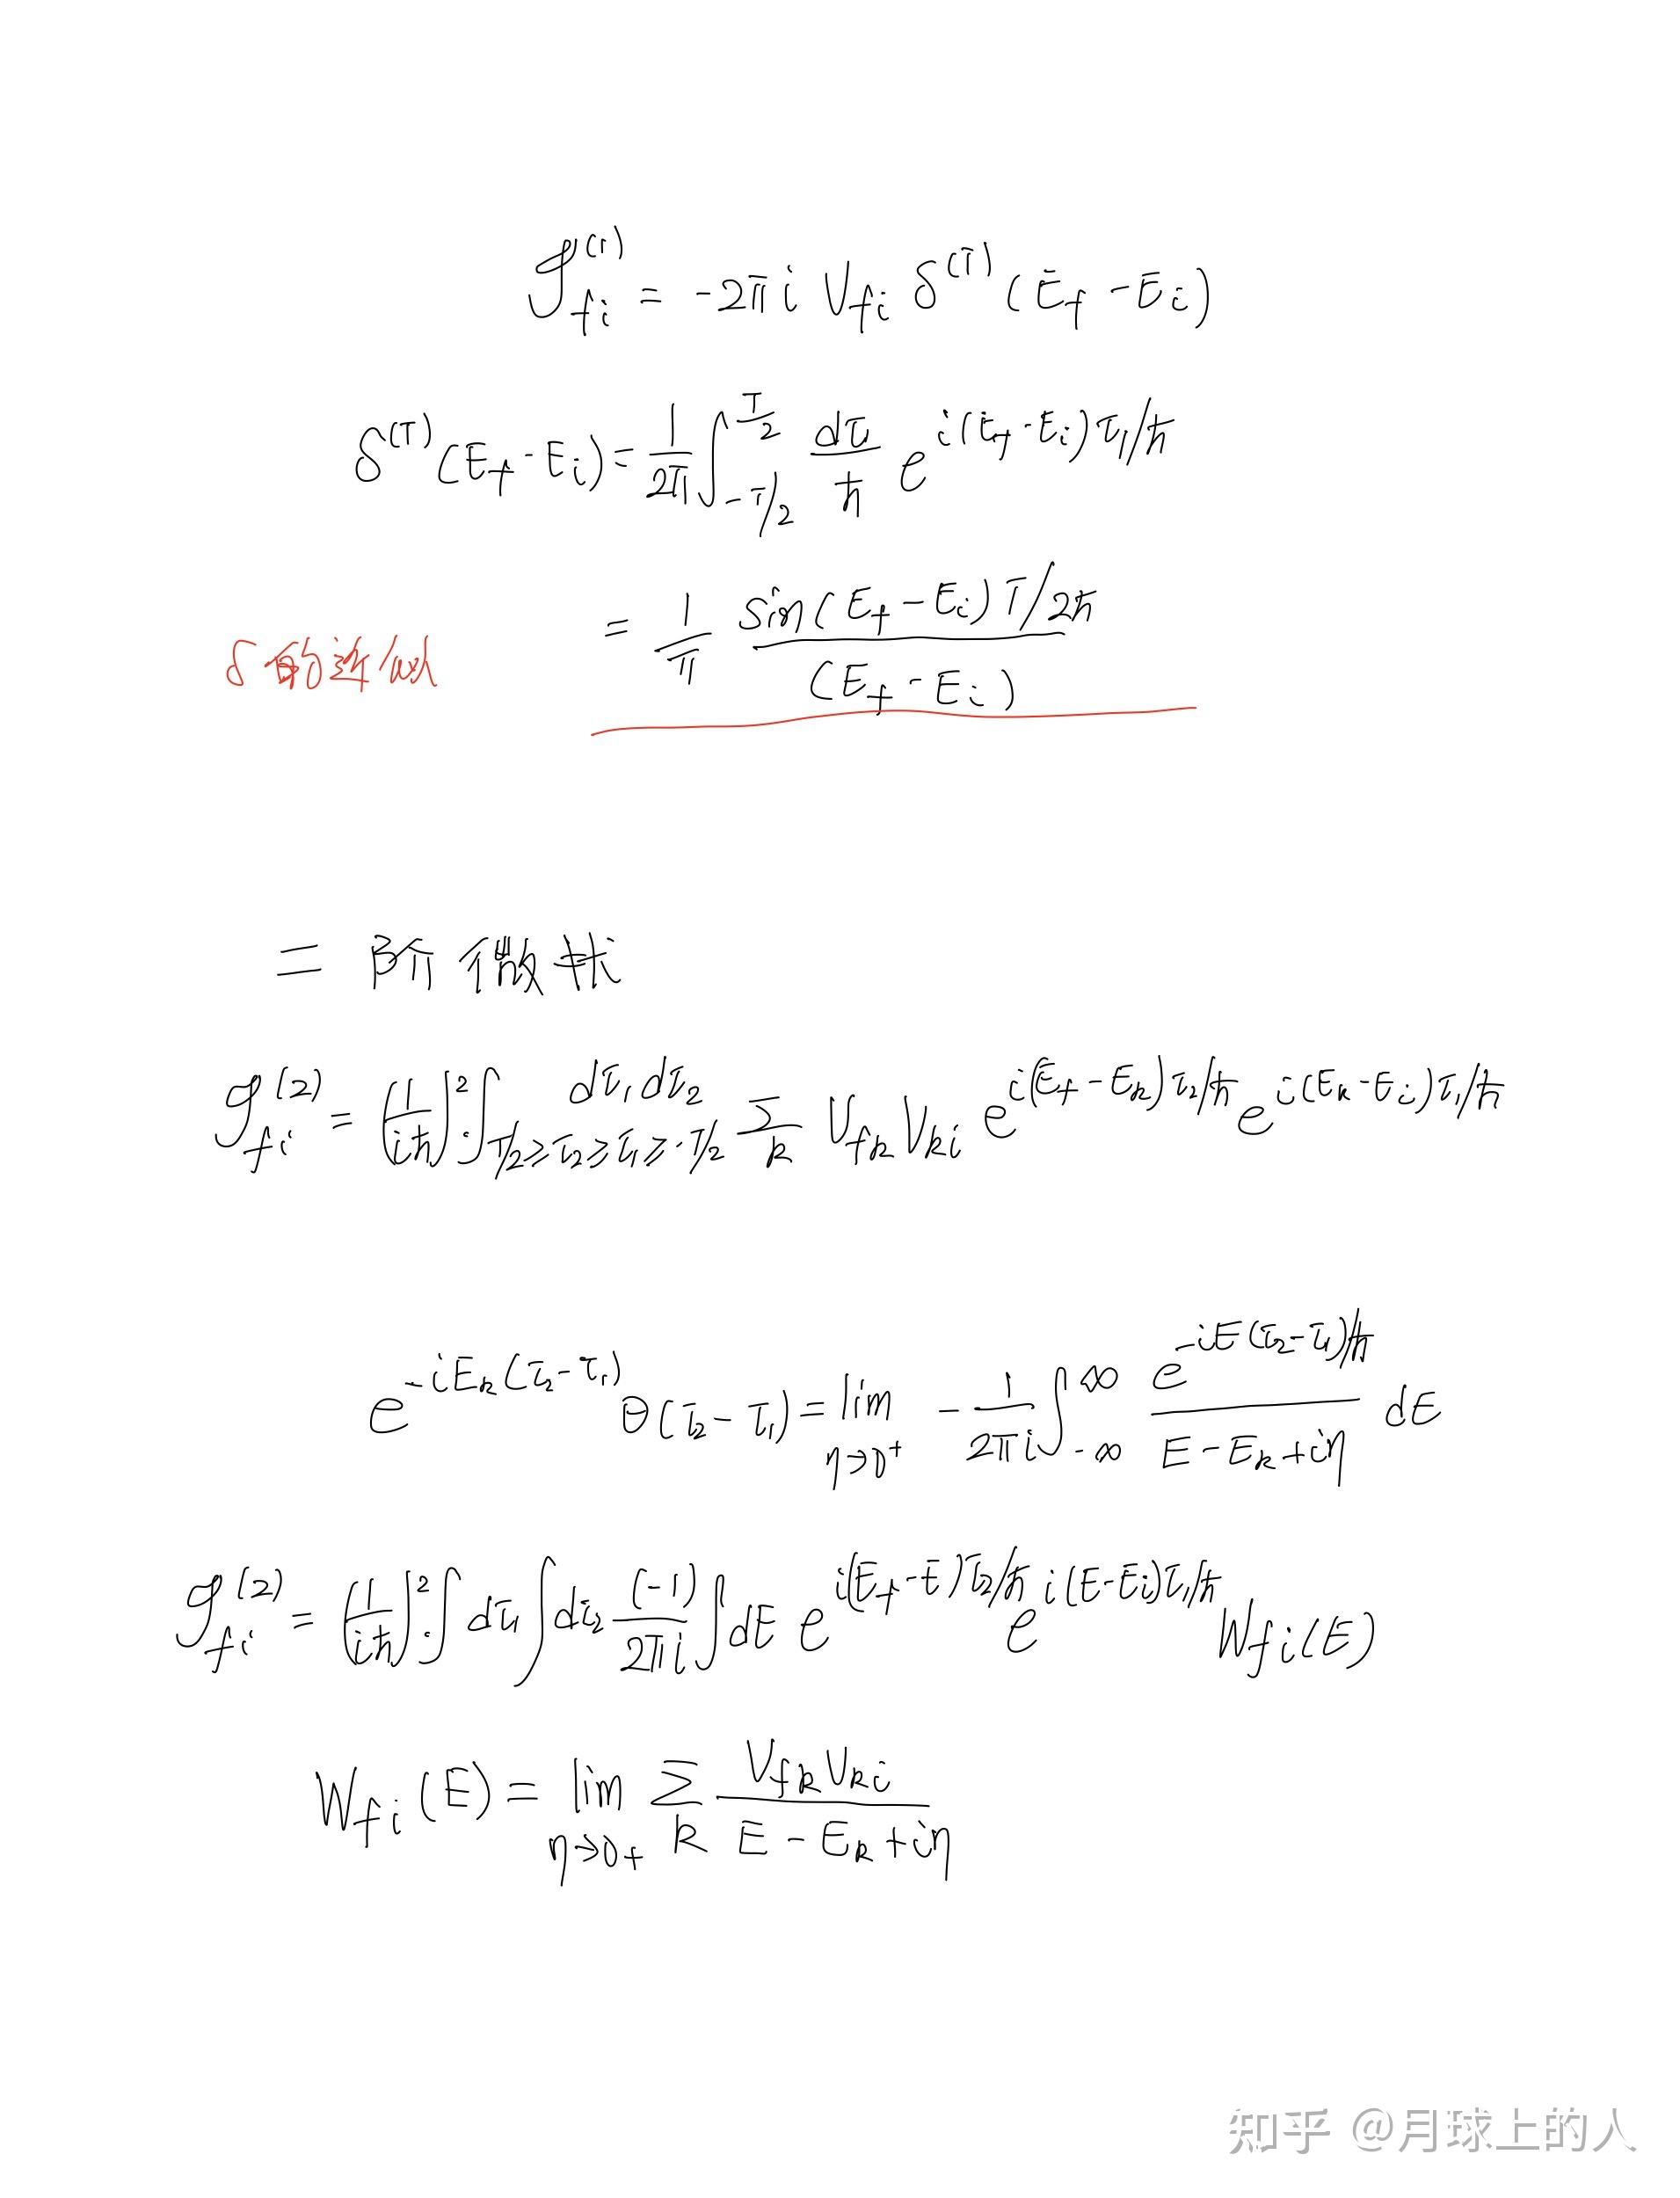 𝒮_{fi}^{(1)} = -2πi V_{fi} δ^{(T)}(E_f - E_i)
δ^{(T)}(E_f - E_i) = \frac{1}{2π} ∫_{-T/2}^{\frac{T}{2}} \frac{dτ_1}{ħ} e^{i(E_f - E_i)τ_1/ħ}
= \frac{1}{π} \frac{sin(E_f - E_i)T/2ħ}{(E_f - E_i)}
δ的近似
二阶微扰
𝒮_{fi}^{(2)} = (\frac{1}{iħ})^2 · ∫_{T/2≥τ_2≥τ_1≥-T/2} dτ_1 dτ_2 Σ_k V_{fk} V_{ki} e^{i(E_f - E_k)τ_2/ħ} e^{i(E_k - E_i)τ_1/ħ}
e^{-iE_k(τ_2 - τ_1)} θ(τ_2 - τ_1) = lim_{η→0^+} -\frac{1}{2πi} ∫_{-∞}^{∞} \frac{e^{-iE(τ_2-τ_1)/ħ}}{E - E_k + iη} dE
𝒮_{fi}^{(2)} = (\frac{1}{iħ})^2 · ∫dτ_1 ∫dτ_2 \frac{(-1)}{2πi} ∫dE e^{i(E_f - E)τ_2/ħ} e^{i(E-E_i)τ_1/ħ} W_{fi}(E)
W_{fi}(E) = lim_{η→0+} Σ_k \frac{V_{fk}V_{ki}}{E - E_k + iη}
知乎 @月球上的人